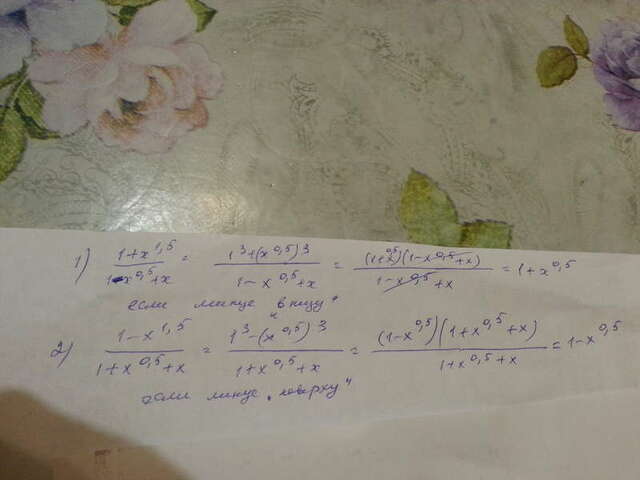 1) (1+x^1,5)/(1-x^0,5+x) = (1^3+(x^0,5)^3)/(1-x^0,5+x) = ((1+x^0,5)(1-x^0,5+x))/(1-x^0,5+x) = 1+x^0,5
если минус „внизу"
2) (1-x^1,5)/(1+x^0,5+x) = (1^3-(x^0,5)^3)/(1+x^0,5+x) = ((1-x^0,5)(1+x^0,5+x))/(1+x^0,5+x) = 1-x^0,5
если минус „поверху"